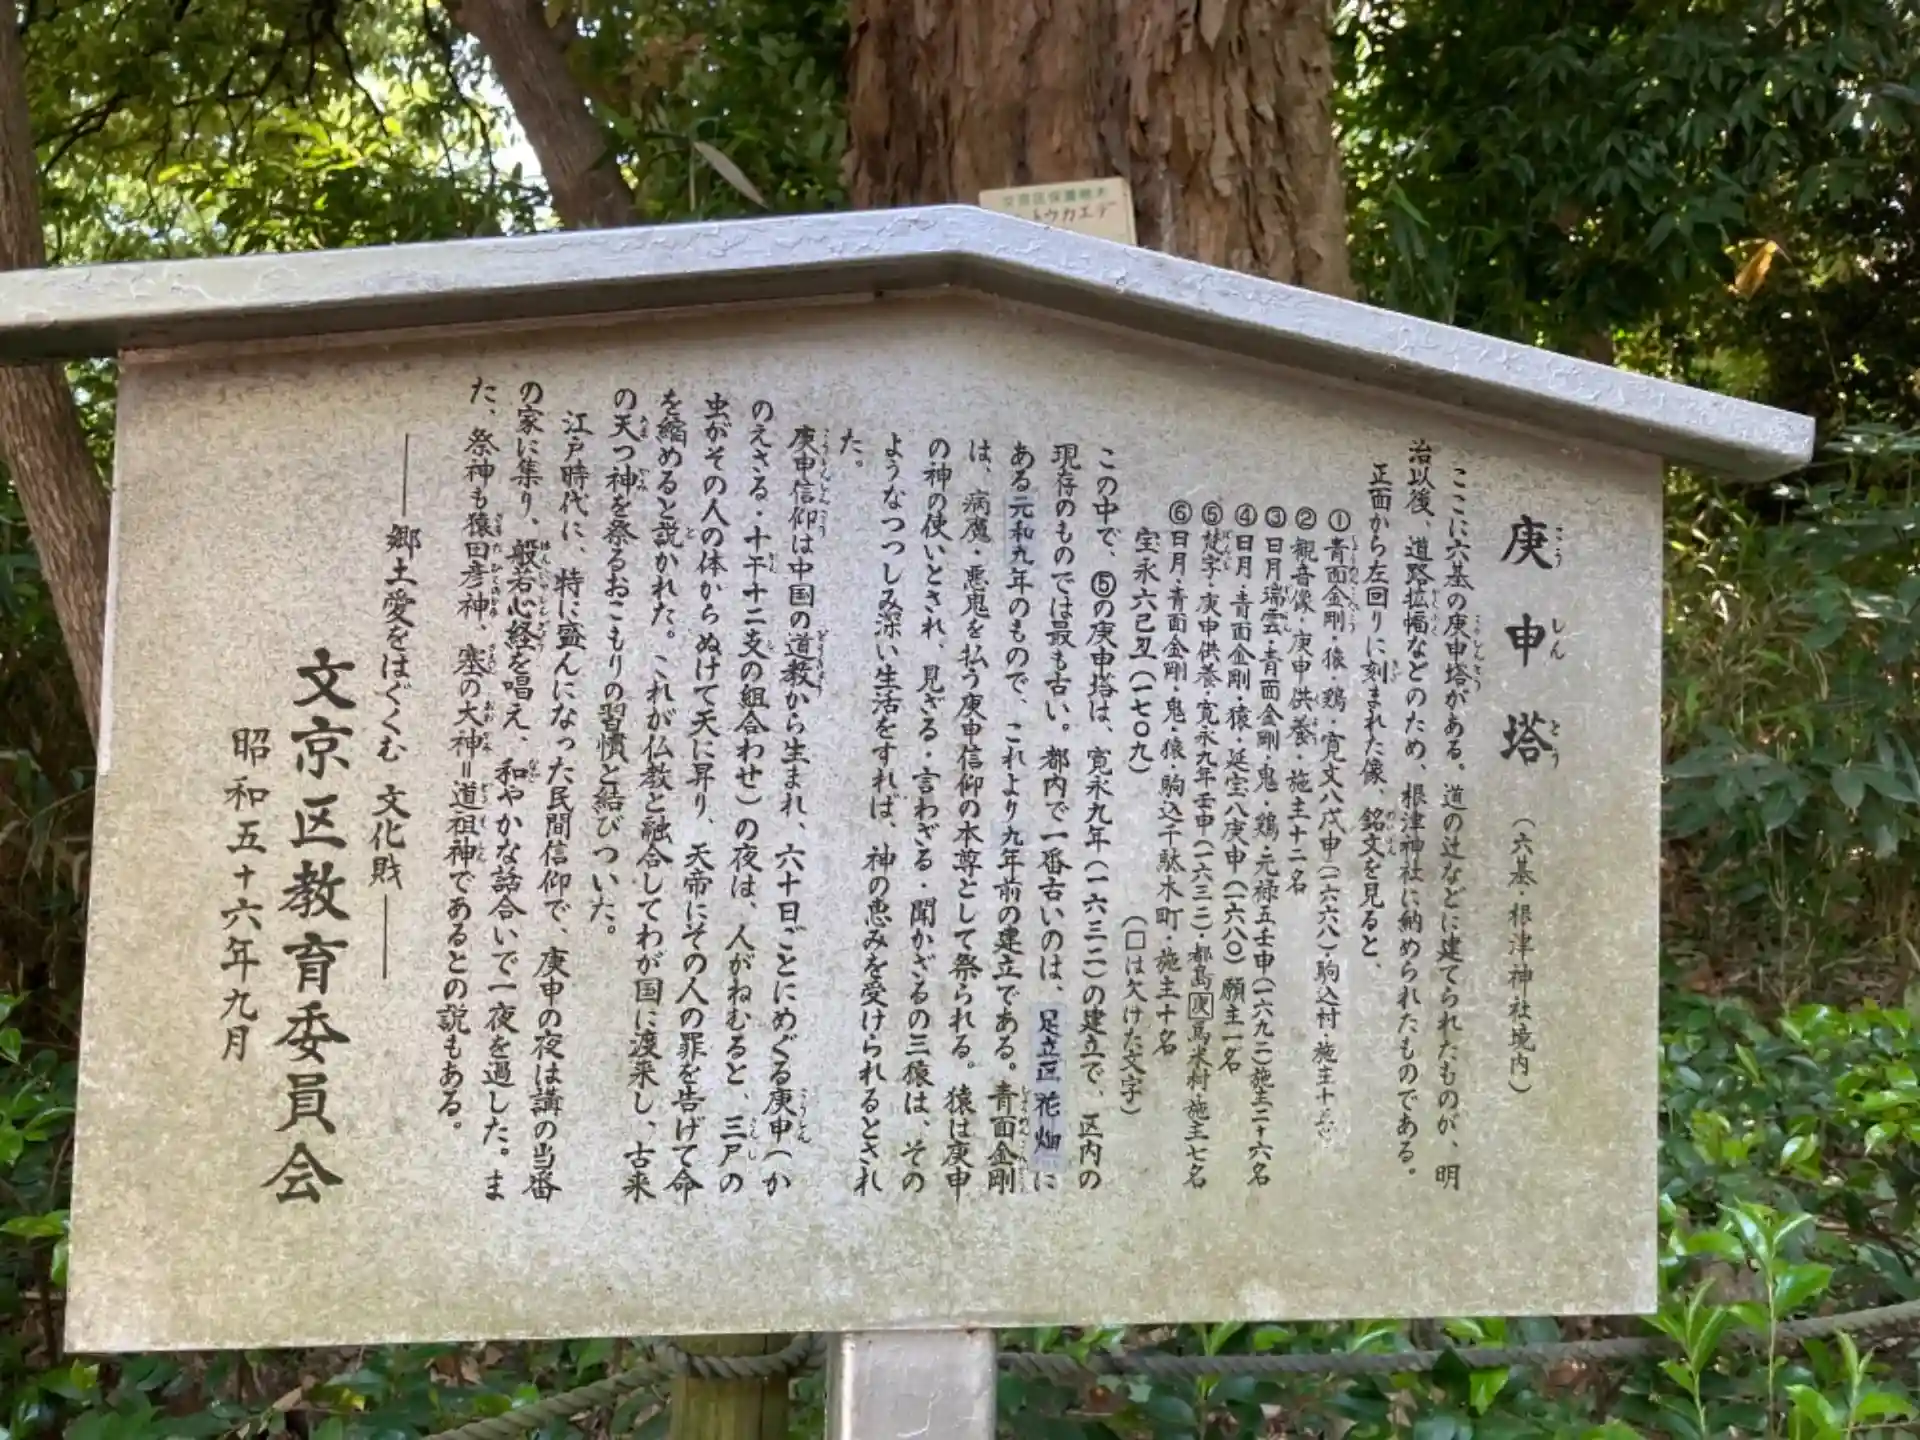 庚申塔（六基・根津神社境内）
ここに六基の庚申塔がある。道の辻などに建てられたものが、明
治以後、道路拡幅などのため、根津神社に納められたものである。
正面から左回りに刻まれた像、銘文を見ると、
①青面金剛・猿・鶏・寛文八戊申（一六六八）・駒込村・施主十
②観音像・庚申供養・施主十二名
③日月瑞雲・青面金剛・鬼・鶏・元禄五壬申（一六九二）施主二十六名
④日月・青面金剛・猿・延宝八庚申（一六八〇）願主一名
⑤梵字・庚申供養・寛永九年壬申（一六三二）・都島庚馬米村・施主七名
⑥日月・青面金剛・鬼・猿・駒込千駄木町・施主十名
宝永六己丑（一七〇九）　（□は欠けた文字）
この中で、⑤の庚申塔は、寛永九年（一六三二）の建立で、区内の
現存のものでは最も古い。都内で一番古いのは、足立区花畑に
ある元和九年のもので、これより九年前の建立である。青面金剛
は、病魔・悪鬼を払う庚申信仰の本尊として祭られる。猿は庚申
の神の使いとされ、見ざる・言わざる・聞かざるの三猿は、その
ようなつつしみ深い生活をすれば、神の恵みを受けられるとされ
た。
庚申信仰は中国の道教から生まれ、六十日ごとにめぐる庚申（か
のえさる・十干十二支の組合わせ）の夜は、人がねむると、三尸の
虫がその人の体からぬけて天に昇り、天帝にその人の罪を告げて命
を縮めると説かれた。これが仏教と融合してわが国に渡来し、古来
の天つ神を祭るおこもりの習慣と結びついた。
江戸時代に、特に盛んになった民間信仰で、庚申の夜は講の当番
の家に集り、般若心経を唱え、和やかな話合いで一夜を過した。ま
た、祭神も猿田彦神、塞の大神＝道祖神であるとの説もある。
――郷土愛をはぐくむ 文化財――
文京区教育委員会
昭和五十六年九月
文京区保護樹木
トウカエデ